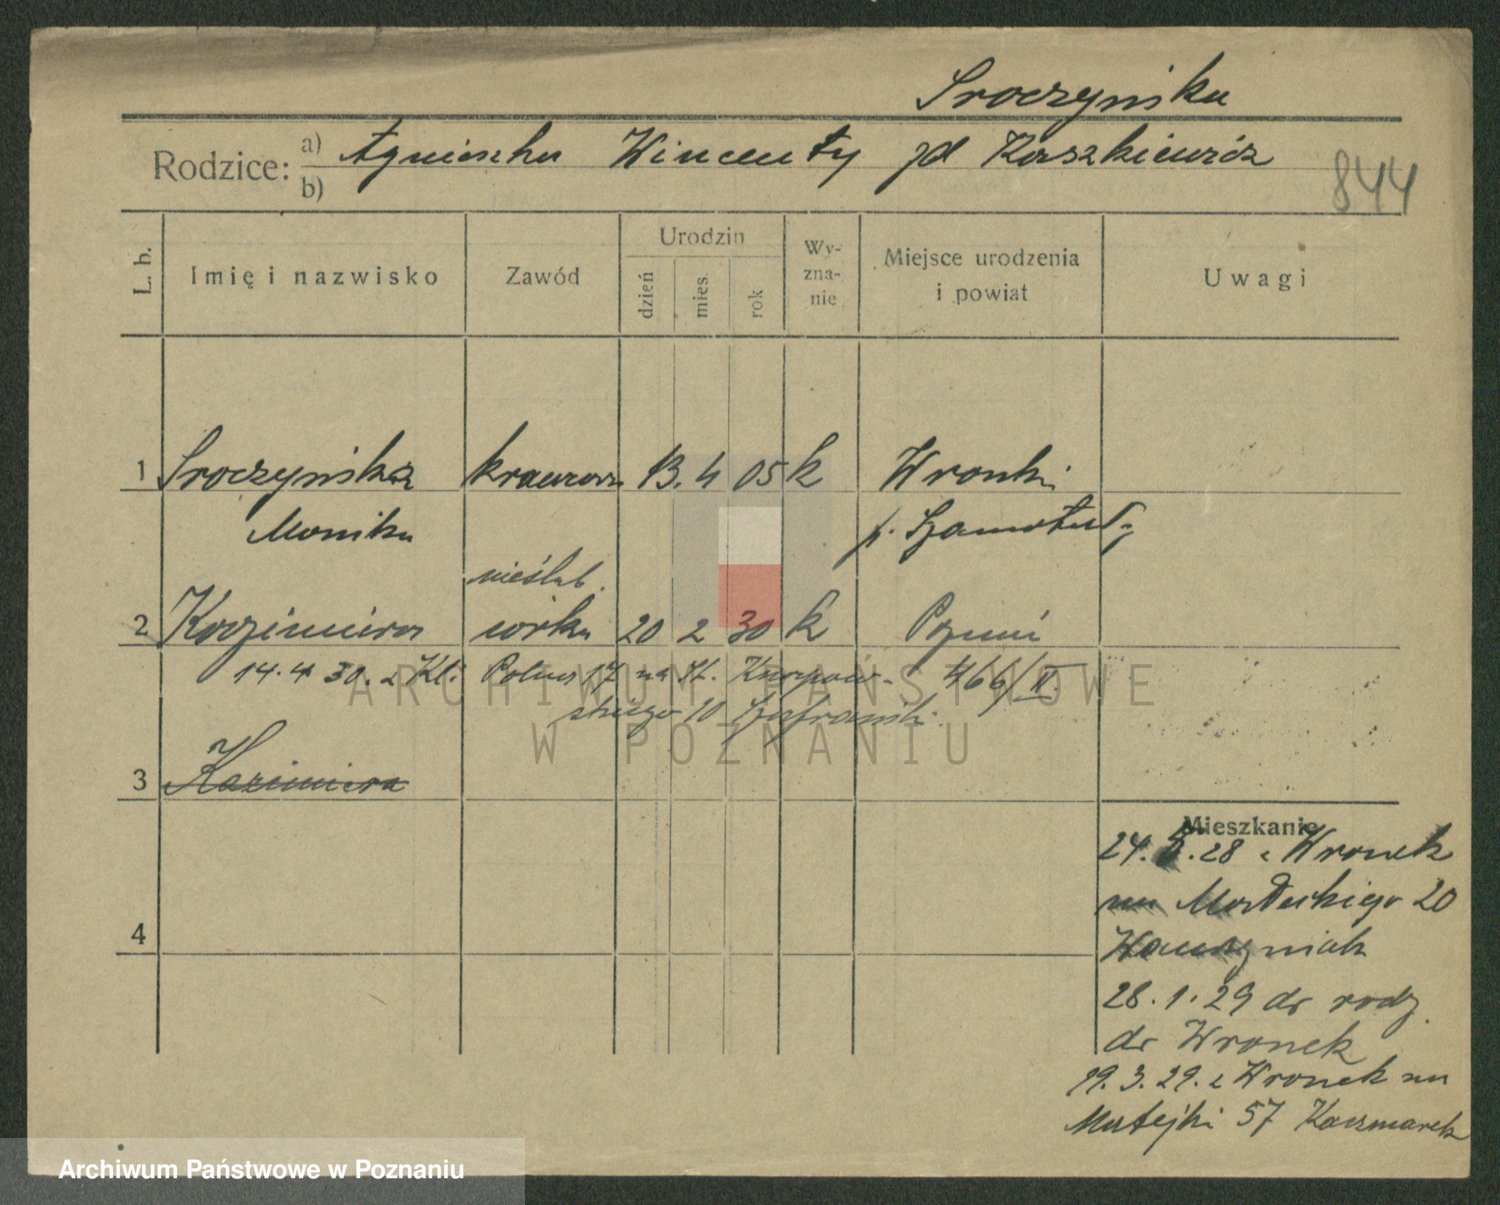 Sroczyńska
Rodzice: a) Agnieszka Wincenty zd Kaszkiewicz
b)
844
L. b.
Imię i nazwisko
Zawód
Urodzin
dzień
mies.
rok
Wy-
zna-
nie
Miejsce urodzenia
i powiat
Uwagi
1 Sroczyńska krawcowa 13. 4 05 k Wronki
Monika p. Szamotuły
nieślub.
2 Kazimiera córka 20 2 30 k Poznań
14. 4 30. z Kl. 17 na St. Knapow- 466/II.
skiego 10
3 Kazimiera
4
Mieszkanie
24. 5. 28 z Wronek
na Małeckiego 20
Wawrzyniak
28. 1. 29 do rodz.
do Wronek
19. 3. 29. z Wronek na
Matejki 57 Kaczmarek
ARCHIWUM PAŃSTWOWE
W POZNANIU
Archiwum Państwowe w Poznaniu